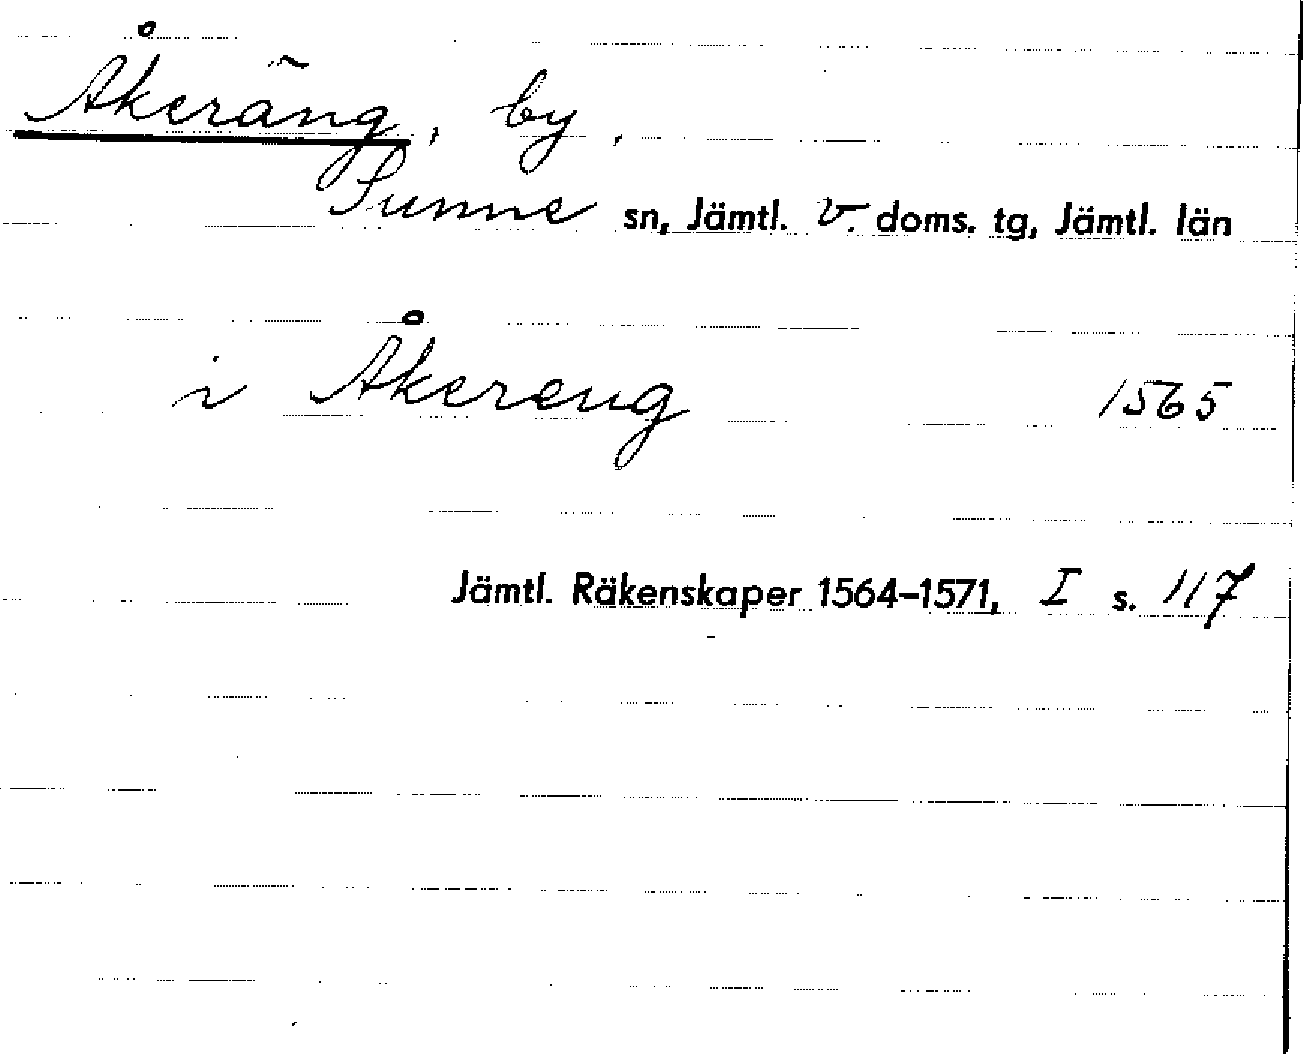 Åkeräng, by,
Sunne sn, Jämtl. v. doms. tg, Jämtl. län
i Åkereng 1565
Jämtl. Räkenskaper 1564–1571, I s. 117